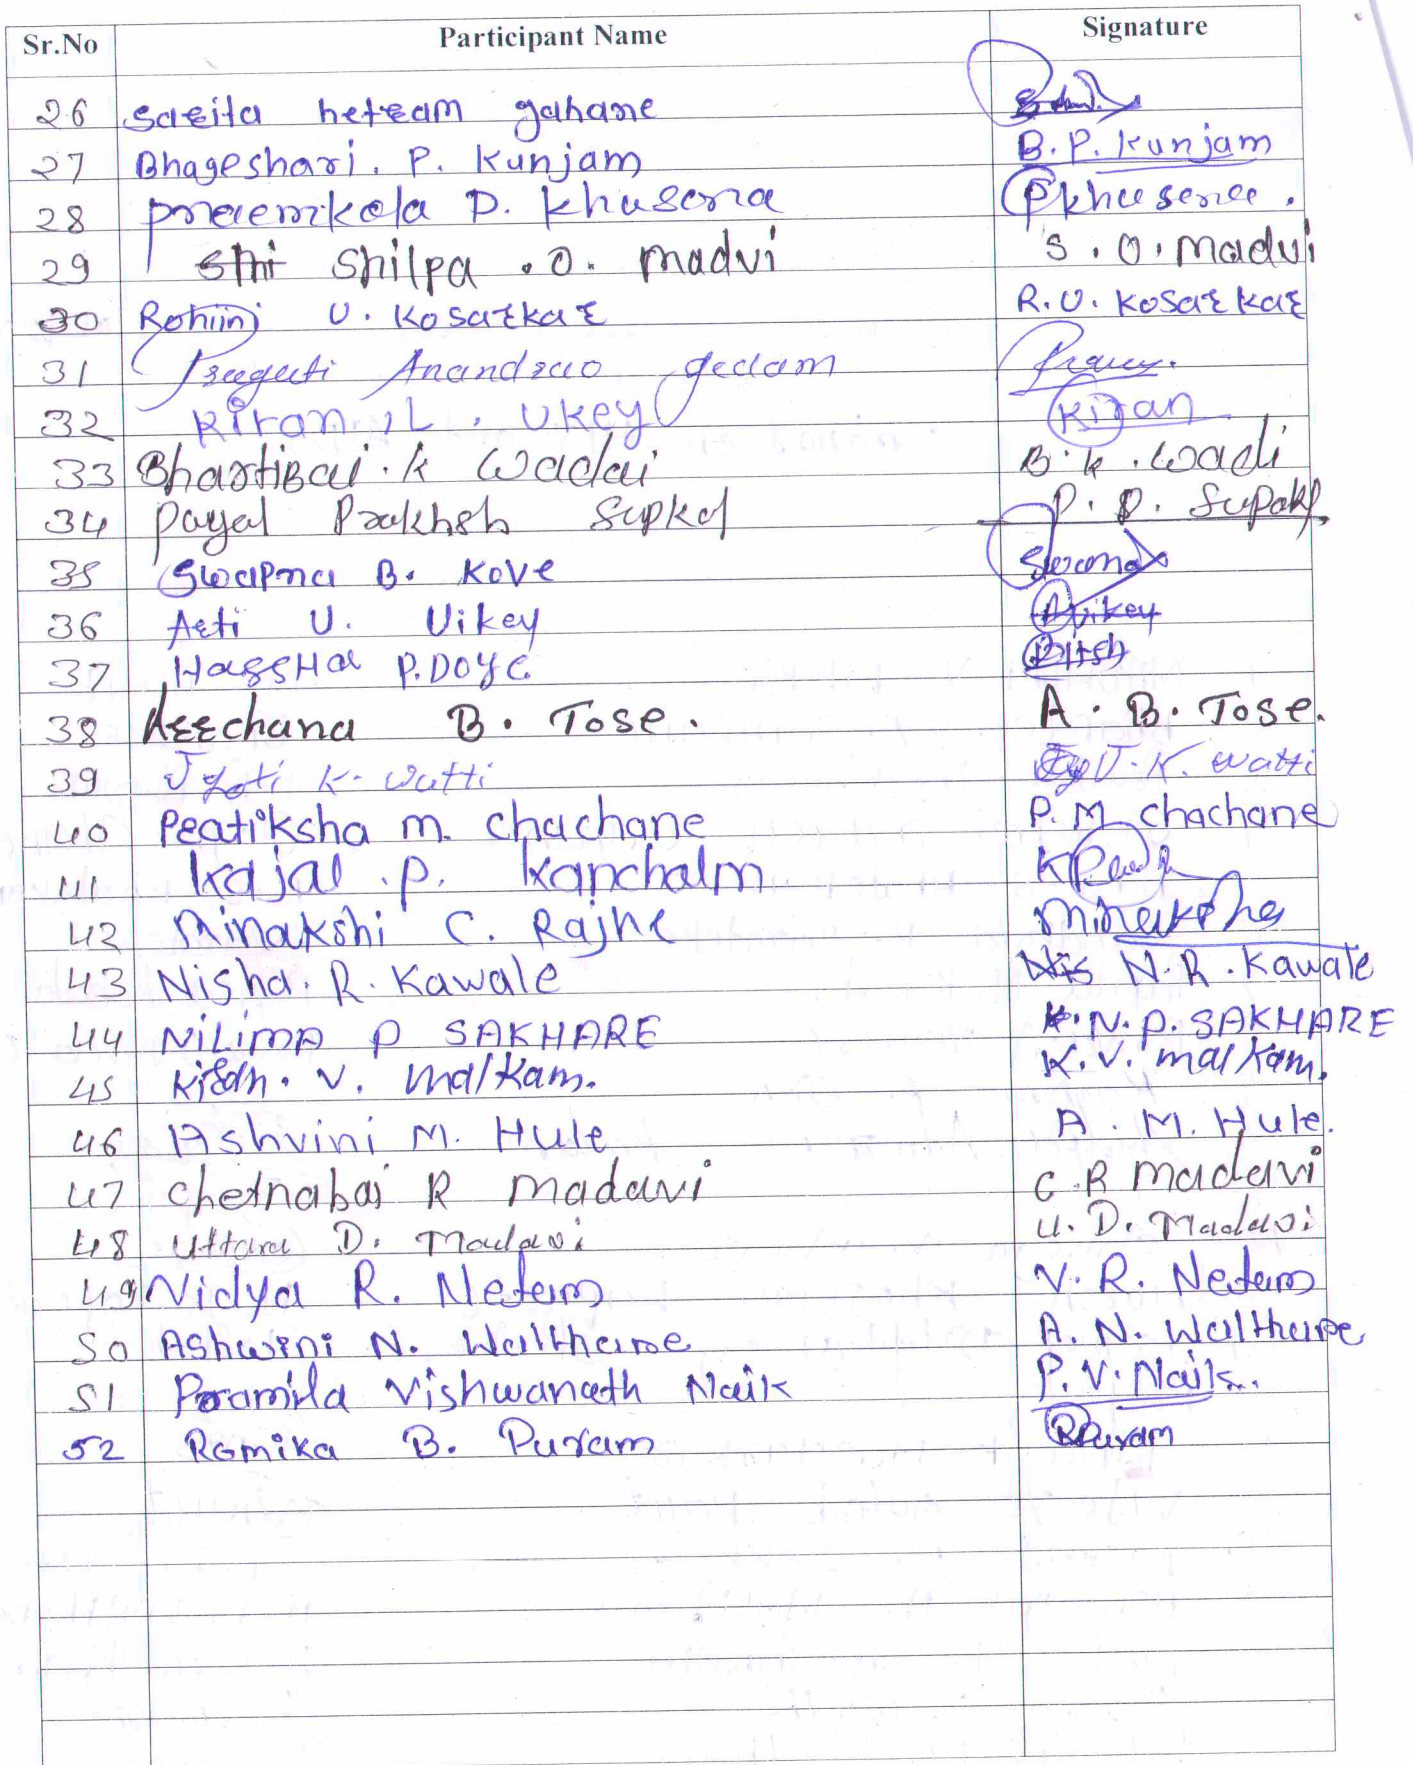 Sr.No Participant Name Signature
26 Sarita hetram gahane
27 Bhageshari. P. Kunjam B.P. Kunjam
28 P. Khusena
29 Shilpa . O. madvi S . O . madvi
30 Rohini U. Kosarkar R.U. Kosarkar
31 Pragati Anandrao gedam
32 Kiran . L . Ukey Kiran
33 BhartiBai . K Wadai B. K . Wadi
34 Payal Prakhsh Supkd P. P.
35 Swapna B. Kove
36 Arti U. Uikey Auikey
37 HarsHa P. DOYE
38 Archana B. Tose. A . B. Tose.
39 Jyoti K. Watti J. K. Watti
40 Pratiksha m. chachane P. M chachane
41 Kajal . P. Kanchalm
42 Minakshi C. Rajne
43 Nisha. R. Kawale N. R . Kawale
44 NILIMA P SAKHARE N. P. SAKHARE
45 Kiran . V. malkam. K. V. malkam.
46 Ashvini M. Hule A . M. Hule.
47 Chetnabai R madavi C R madavi
48 Uttara D. Madavi U. D. Madavi
49 Vidya R. Netam V. R. Netam
50 Ashwini N. Walthare A. N. Walthare
51 Pramila Vishwanath Naik P. V. Naik.
52 Romika B. Puram RPuram